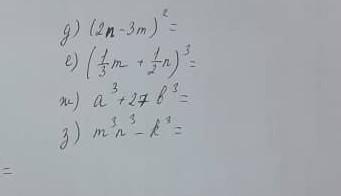 д) (2n - 3m)² =
е) (1/3 m + 1/2 n)³ =
ж) a³ + 27 b³ =
з) m³n³ - k³ =
=